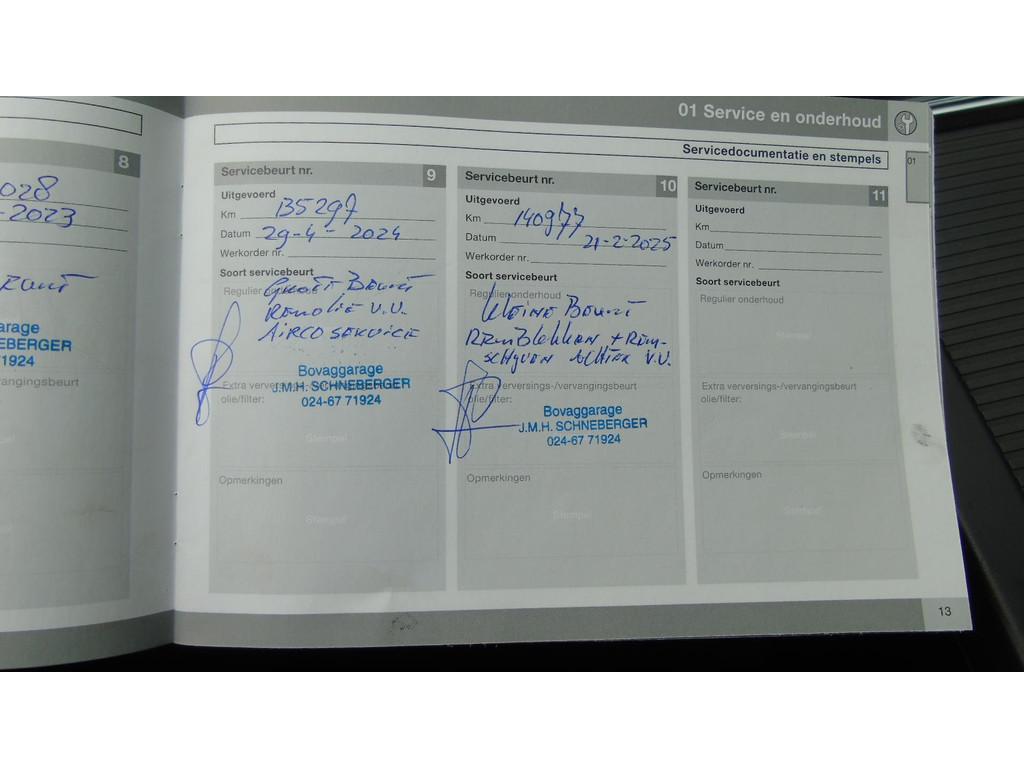 01 Service en onderhoud
01
Servicedocumentatie en stempels
8
028
-2023
arage
NEBERGER
1924
vervangingsbeurt
Servicebeurt nr. 9
Uitgevoerd
Km 135297
Datum 29-4-2024
Werkorder nr.
Soort servicebeurt
Groot Beurt
Remolie V.V.
Airco service
Bovaggarage
J.M.H. SCHNEBERGER
024-67 71924
olie/filter:
Stempel
Opmerkingen
Stempel
Servicebeurt nr. 10
Uitgevoerd
Km 140977
Datum 21-2-2025
Werkorder nr.
Soort servicebeurt
Regulier onderhoud
Kleine Beurt
Remblokken + Rem-
schyven Achter V.V.
Extra verversings-/vervangingsbeurt
olie/filter:
Bovaggarage
J.M.H. SCHNEBERGER
024-67 71924
Opmerkingen
Stempel
Servicebeurt nr. 11
Uitgevoerd
Km
Datum
Werkorder nr.
Soort servicebeurt
Regulier onderhoud
Stempel
Extra verversings-/vervangingsbeurt
olie/filter:
Stempel
Opmerkingen
Stempel
13